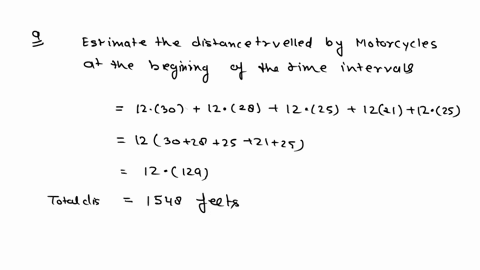 a
Estimate the distance trvelled by Motorcycles
at the begining of the time intervals
= 12.(30) + 12.(28) + 12.(25) + 12(21) + 12.(25)
= 12 (30+28+25+21+25)
= 12.(129)
Total dis = 1548 feets